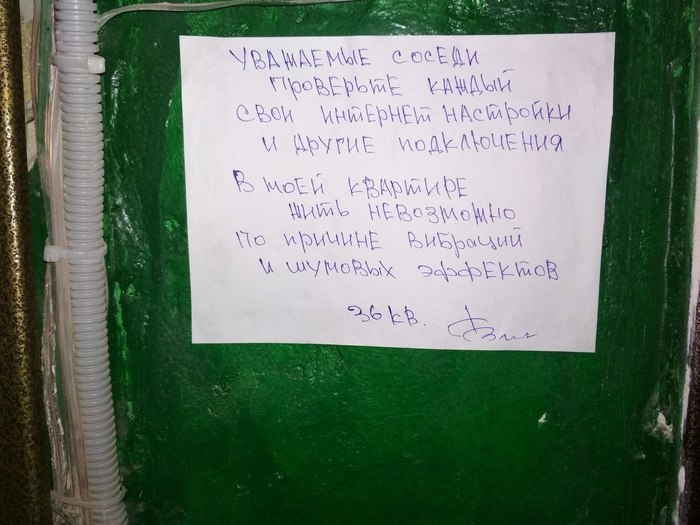 УВАЖАЕМЫЕ СОСЕДИ
ПРОВЕРЬТЕ КАЖДЫЙ
СВОИ ИНТЕРНЕТ НАСТРОЙКИ
И ДРУГИЕ ПОДКЛЮЧЕНИЯ
В МОЕЙ КВАРТИРЕ
ЖИТЬ НЕВОЗМОЖНО
ПО ПРИЧИНЕ ВИБРАЦИЙ
И ШУМОВЫХ ЭФФЕКТОВ
36 КВ.